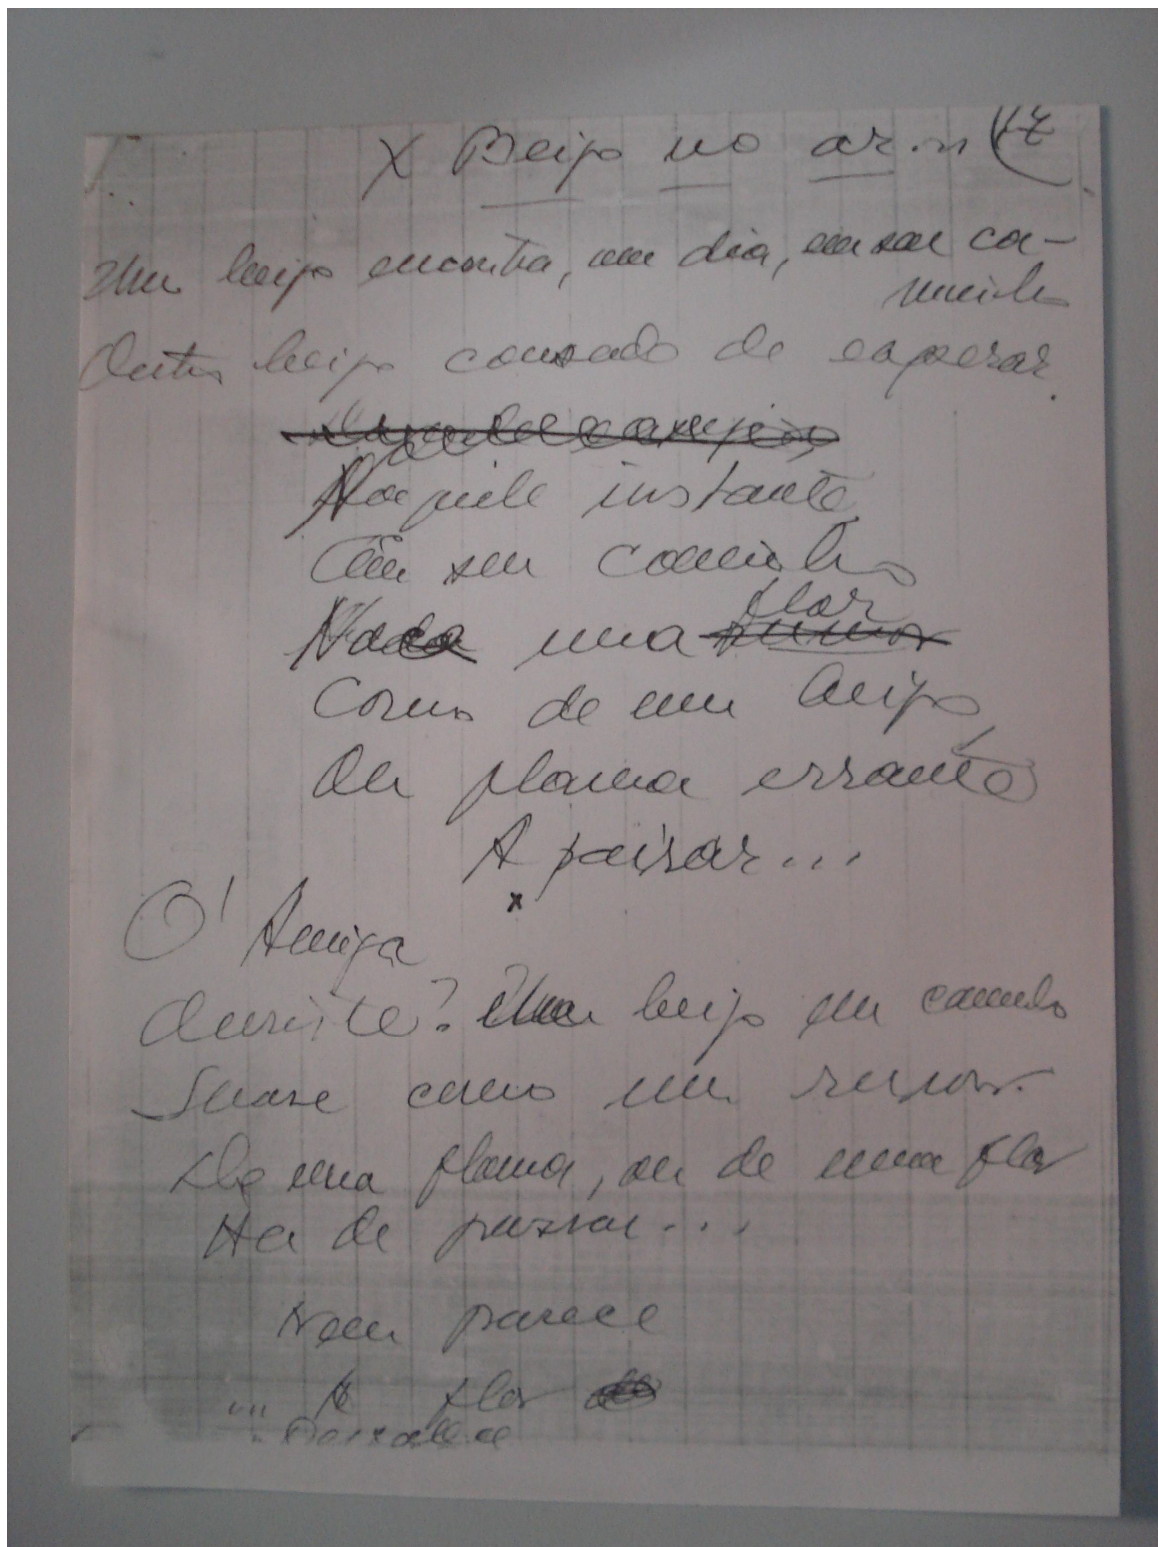 X Beijo no ar
Um beijo encontra, um dia, em seu ca-
minho
Outro beijo cansado de esperar.
Naquele instante
Em seu caminho
uma flor
Como de um beijo,
Ou flama errante
A pairar...
x
O' Amiga
Ouviste? Um beijo em caminho
Suave como um rumor
De uma flama, ou de uma flor
Ha de passar...
Nem parece
... A flor